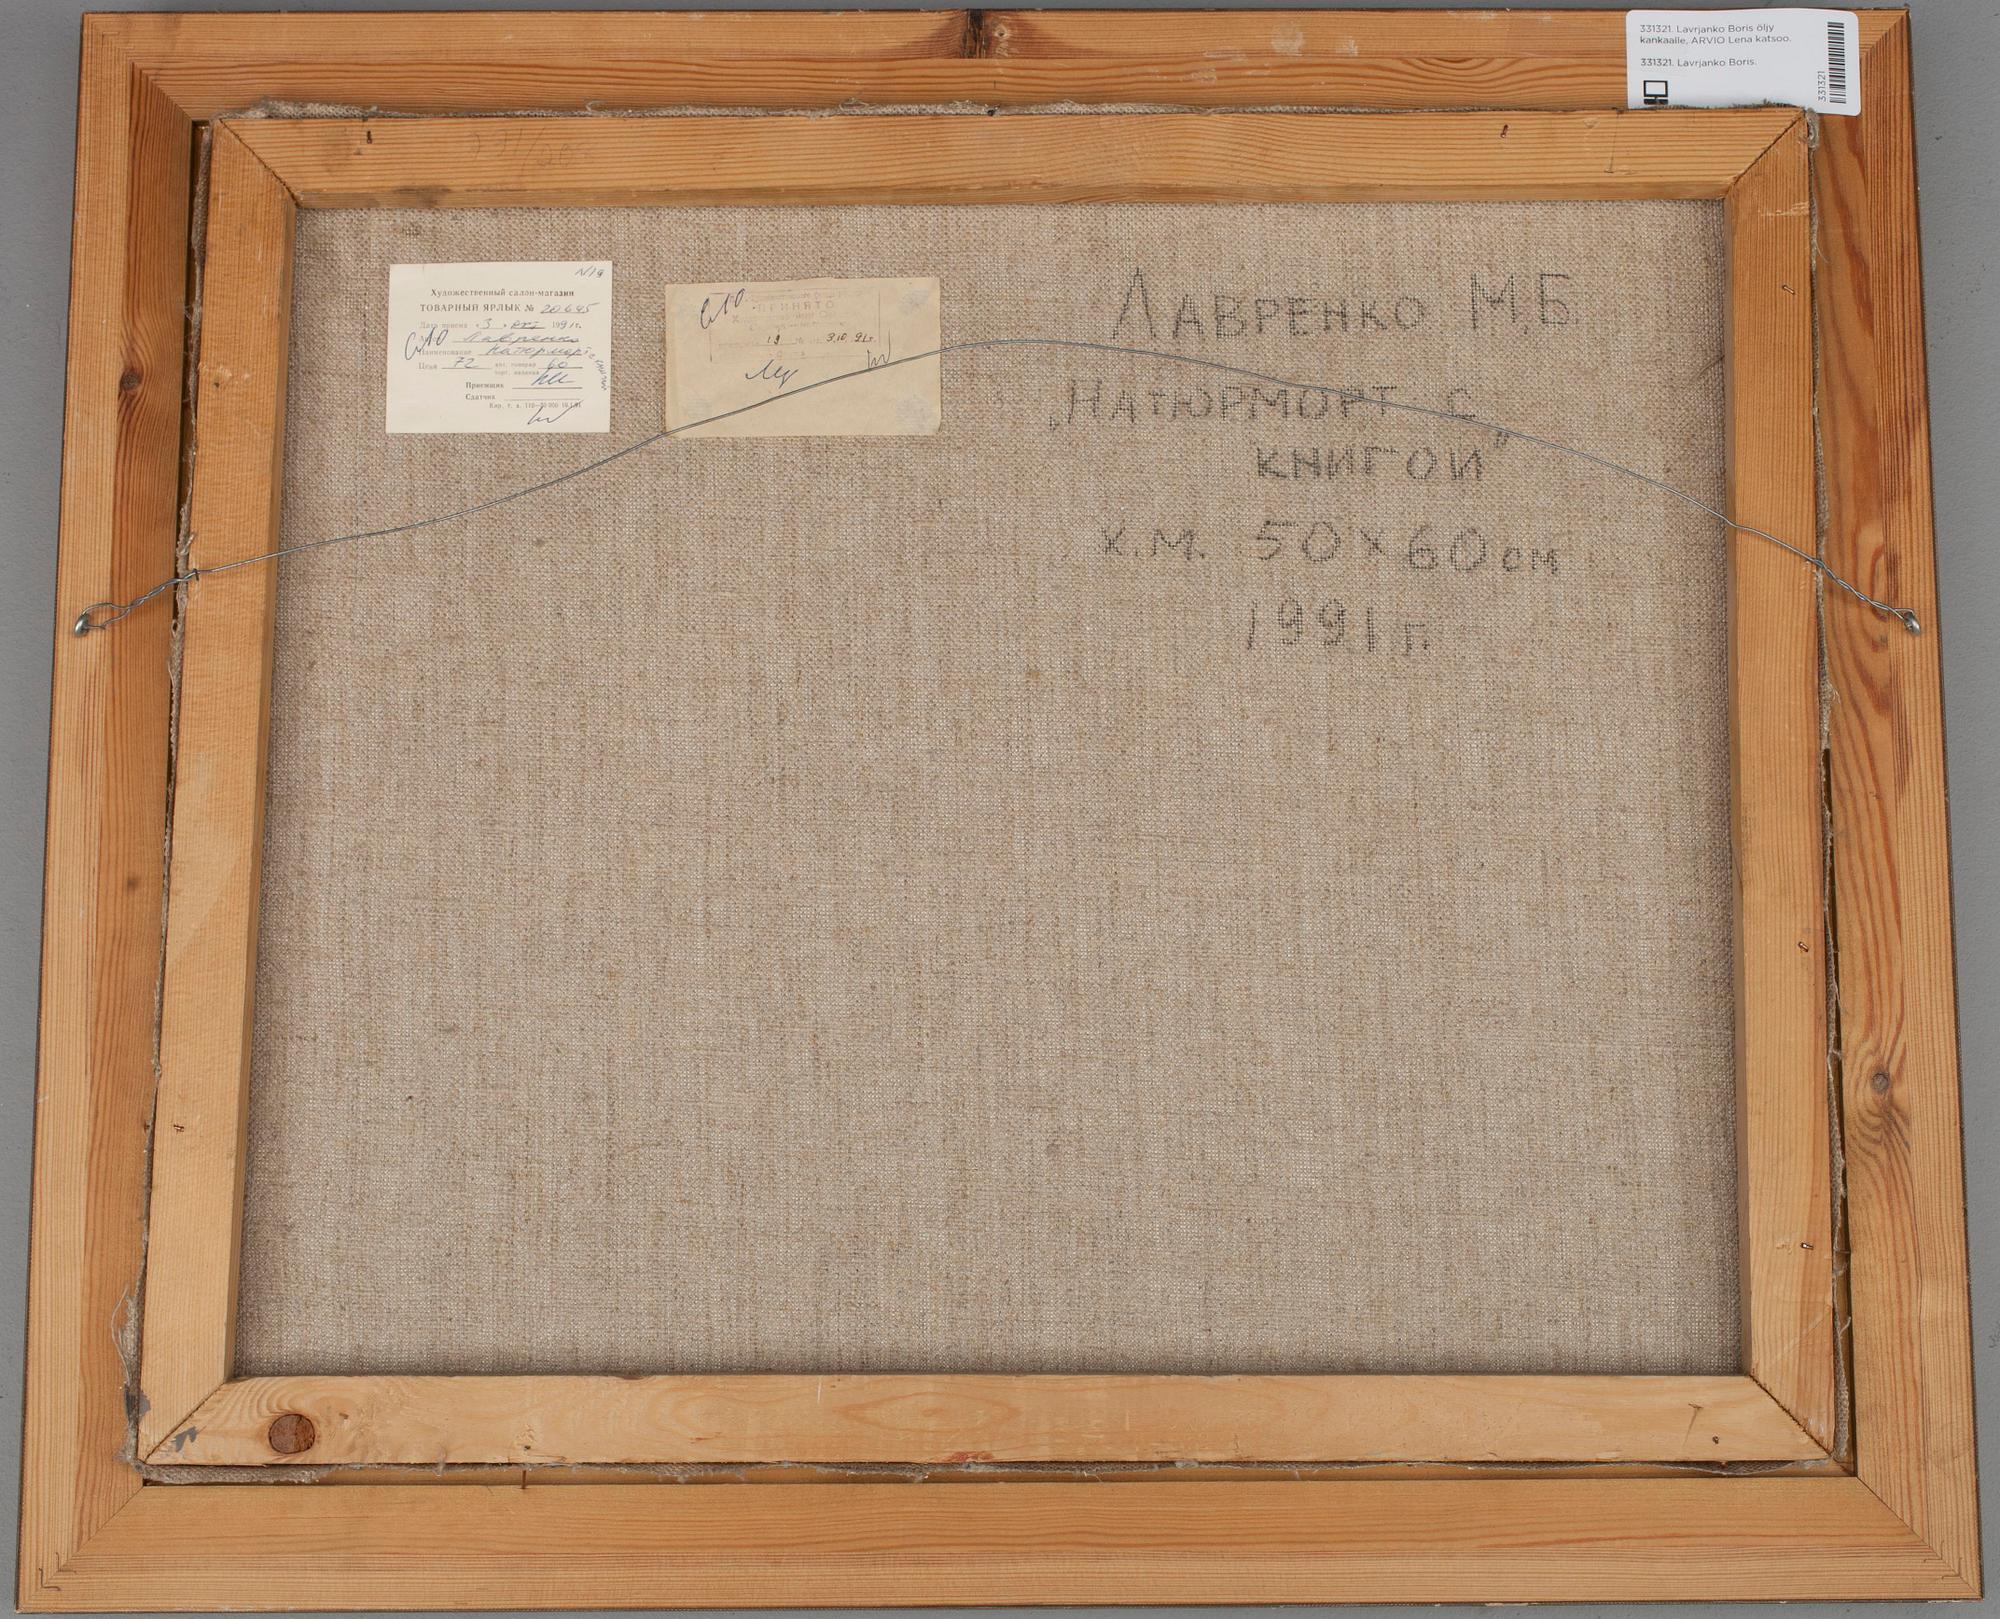 331321. Lavrjanko Boris öljy
kankaalle, ARVIO Lena katsoo.
331321. Lavrjanko Boris.
331321
N19
Художественный салон-магазин
ТОВАРНЫЙ ЯРЛЫК № 20645
Дата приема «3» окт 1991 г.
Лавренко
Наименование Натюрморт с книгой
Цена 72 60
Приемщик
Сдатчик
ПРИНЯТО
19 3.10.91г.
ЛАВРЕНКО М.Б.
„НАТЮРМОРТ С
КНИГОЙ"
х.м. 50×60см
1991г.